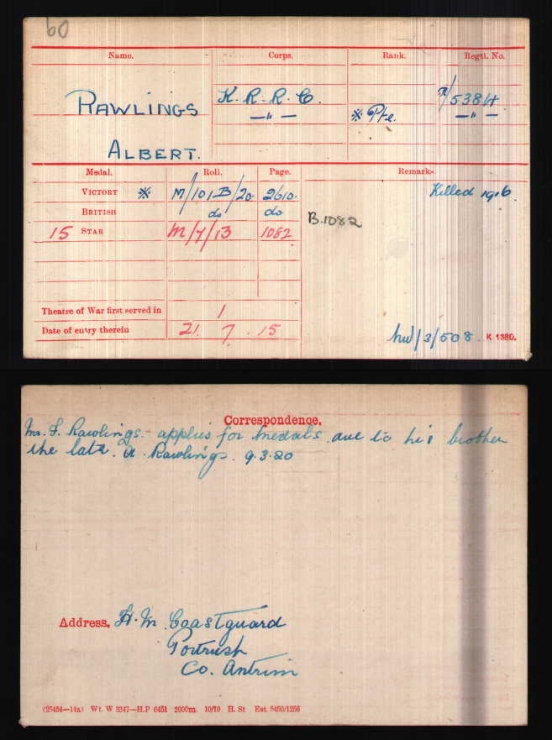 60
Name. Corps. Rank. Regtl. No.
RAWLINGS K. R. R. C. R/5384.
—"— ※ Pte. —"—
ALBERT.
Medal. Roll. Page. Remarks
VICTORY ※ M/101B/20. 2610. Killed 1916
BRITISH do do
B.1082
15 STAR M/7/13 1082
Theatre of War first served in 1
Date of entry therein 21. 7. 15
nw/3/508. K 1380.
Correspondence.
Mr. F. Rawlings. applies for medals due to his brother
the late. A. Rawlings. 9.3.20
Address. H. M. Coastguard
Portrush
Co. Antrim
(25434—14a) Wt. W 5347—H.P 6451 2000m. 10/19 H. St